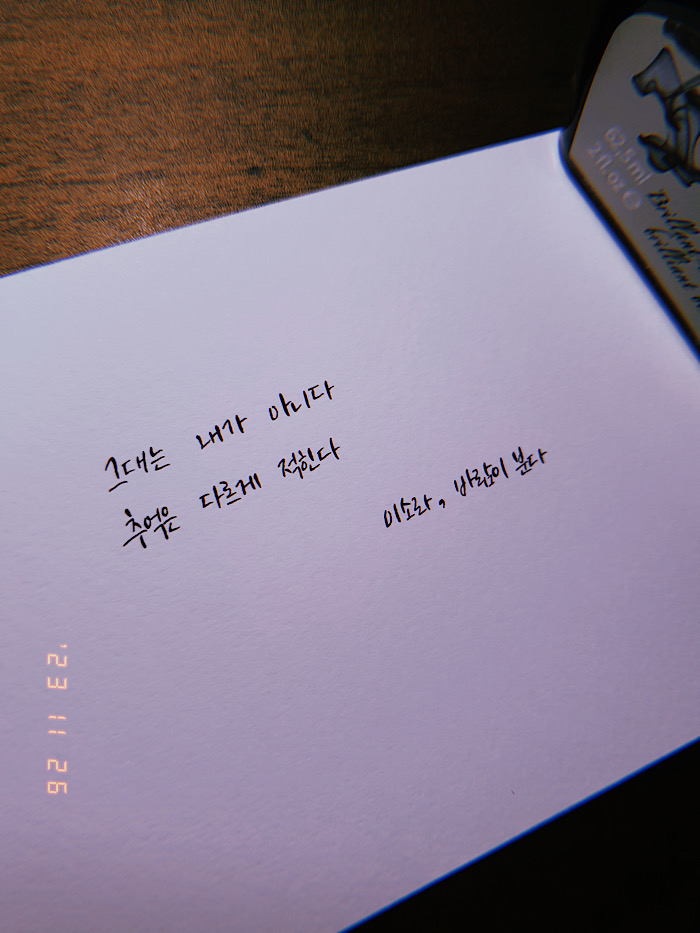 62.5ml
2 fl.oz e
Brillant
brilliant
그대는 내가 아니다
추억은 다르게 적힌다
이소라, 바람이 분다
'23 11 26